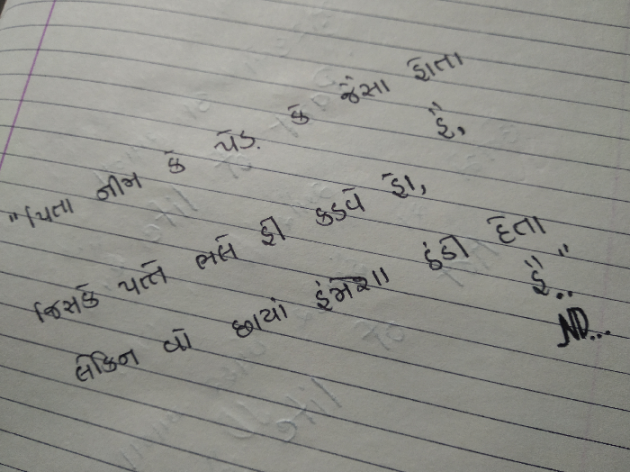 "પિતા નીમ કે પેડ. કે જૈસા હોતા
હૈ,
જિસકે પત્તે ભલે હી કડવે હો,
લેકિન વો છાયાં હંમેશા ઠંડી દેતા
હૈ.."
ND...